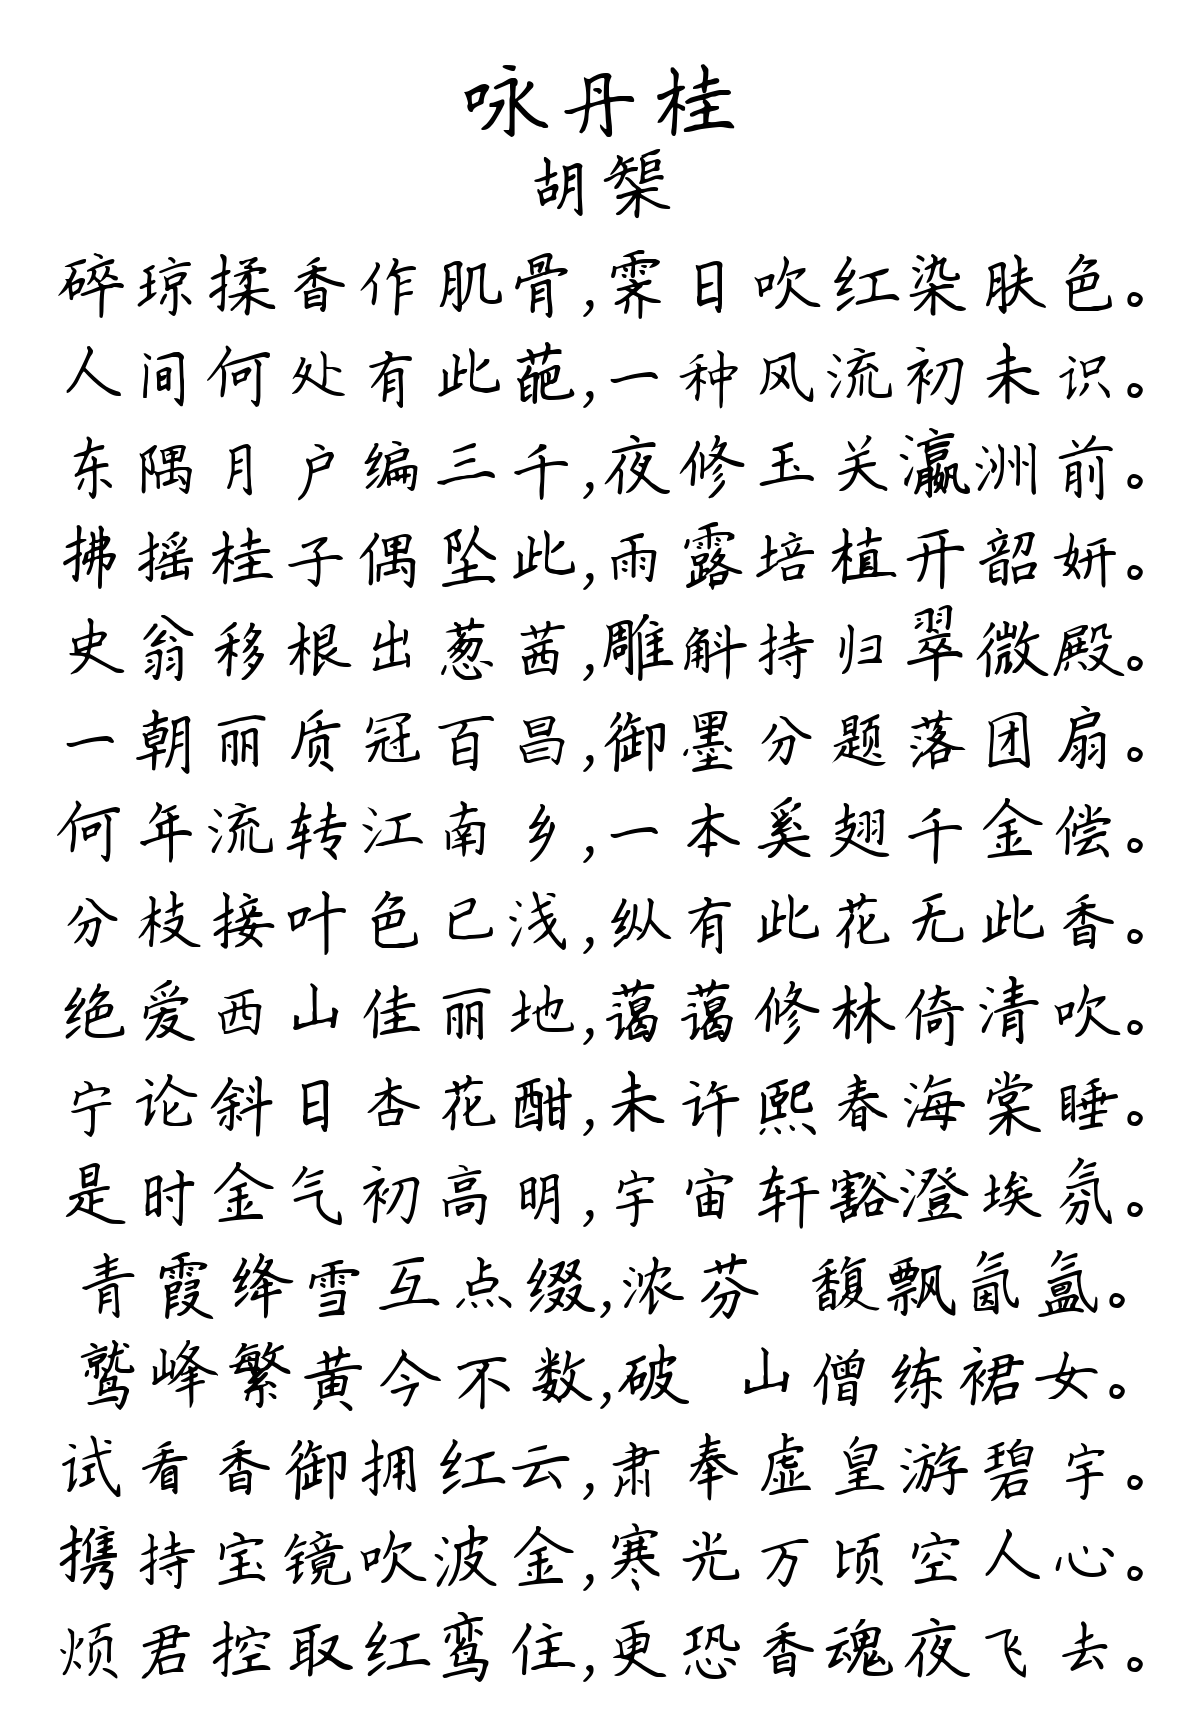 咏丹桂
胡榘
碎琼揉香作肌骨,霁日吹红染肤色。
人间何处有此葩,一种风流初未识。
东隅月户编三千,夜修玉关瀛洲前。
拂摇桂子偶坠此,雨露培植开韶妍。
史翁移根出葱茜,雕斛持归翠微殿。
一朝丽质冠百昌,御墨分题落团扇。
何年流转江南乡,一本奚翅千金偿。
分枝接叶色已浅,纵有此花无此香。
绝爱西山佳丽地,蔼蔼修林倚清吹。
宁论斜日杏花酣,未许熙春海棠睡。
是时金气初高明,宇宙轩豁澄埃氛。
青霞绛雪互点缀,浓芬 馥飘氤氲。
鹫峰繁黄今不数,破 山僧练裙女。
试看香御拥红云,肃奉虚皇游碧宇。
携持宝镜吹波金,寒光万顷空人心。
烦君控取红鸾住,更恐香魂夜飞去。